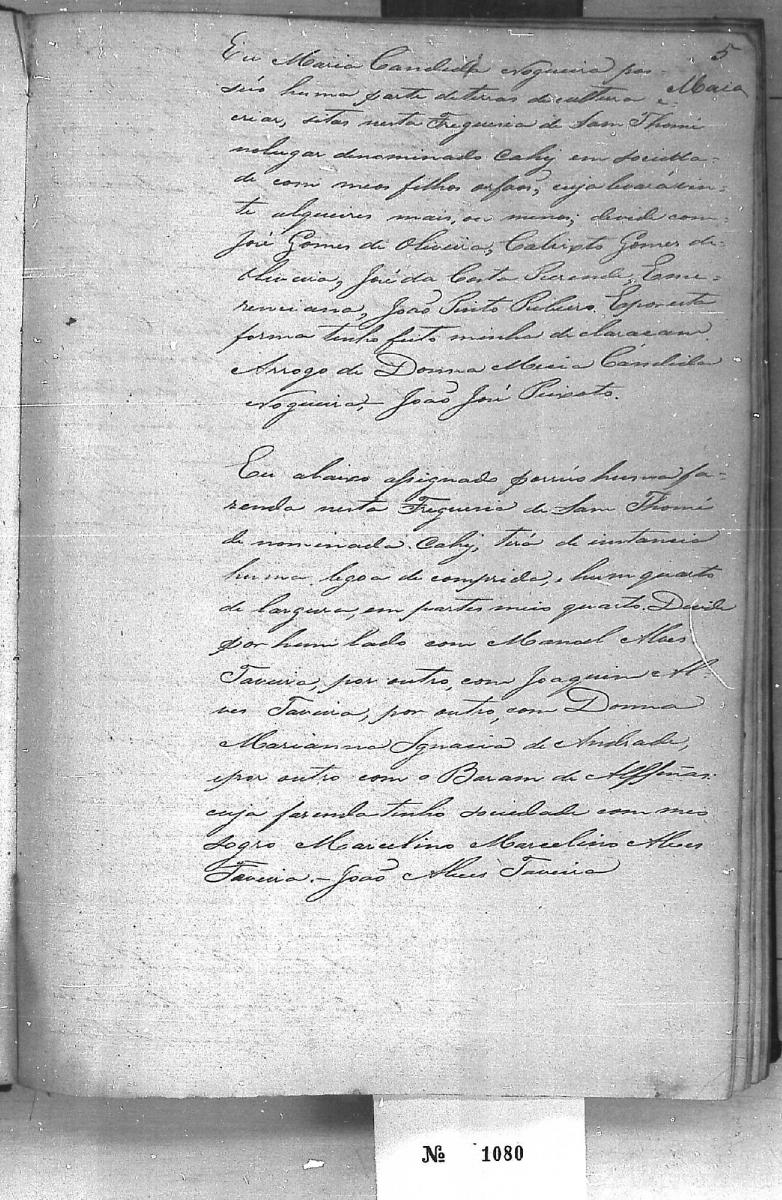 5
Maia
Eu Maria Candida Nogueira pos-
suo huma parte deterras de cultura e
criar, sitas nesta Freguesia de Sam Thomé
nolugar denominado Cahy em socieda-
de com meos filhos orfaos, cuja levará vin-
te alqueires mais, ou menos; devide com
José Gomes de Oliveira, Calixto Gomes de
Oliveira, José da Costa Rezende, Eme-
renciana, João Pinto Ribeiro. Eporesta
forma tenho feito minha declaracam.
Arrogo de Donna Maria Cándida
Nogueira,- João José Peixoto.
Eu abaixo assignado possuo huma fa-
zenda nesta Freguesia de Sam Thomé
denominada Cahy, terá de distancia
huma legoa de comprida, e hum quarto
de largura, em partes meio quarto. Devide
por hum lado com Manoel Alves
Taveira, por outro, com Joaquim Al-
ves Taveira, por outro, com Donna
Marianna Ignacia de Andrade,
epor outro com o Baram de Alffenas:
cuja fazenda tenho sociedade com meo
sogro Marcelino Marcelino Alves
Taveira.- João Alves Taveira
Nº 1080